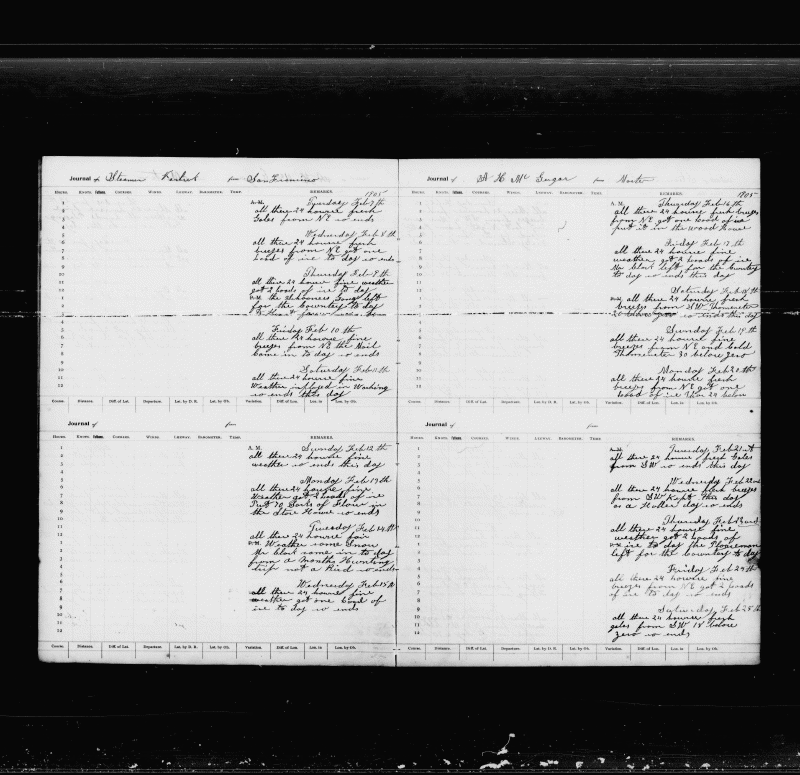 Journal of Steamer from San Francisco
HOURS. KNOTS. Fathoms. COURSES. WINDS. LEEWAY. BAROMETER. TEMP. REMARKS. 1905
A. M. Tuesday Feb 7th
all these 24 hours fresh
Gales from NE so ends
Wednesday Feb 8th
all these 24 hours fresh
breezes from NE got one
load of ice to day so ends
Thursday Feb 9th
all these 24 hours fine weather
got 2 loads of ice to day
P.M. the left
for the Countery to day
Friday Feb 10th
all these 24 hours fine
breezes from NE the Mail
Came in to day so ends
Saturday Feb 11th
all these 24 hours fine
Weather imployed in Washing
so ends this day
Course. Distance. Diff. of Lat. Departure. Lat. by D. R. Lat. by Ob. Variation. Diff. of Lon. Lon. in Lon. by Ob.
Journal of from
HOURS. KNOTS. Fathoms. COURSES. WINDS. LEEWAY. BAROMETER. TEMP. REMARKS.
A. M. Sunday Feb 12th
all these 24 hours fine
weather so ends this day
Monday Feb 13th
all these 24 hours fine
Weather got 2 loads of ice
Put 70 Sacks of Flour in
the Store House so ends
Tuesday Feb 14th
all these 24 hours fair
P.M. Weather some Snow
Mr came in to day
from a Months Hunting
trip not a Bird so ends
Wednesday Feb 15th
all these 24 hours fine
weather got one load of
ice to day so ends
Course. Distance. Diff. of Lat. Departure. Lat. by D. R. Lat. by Ob. Variation. Diff. of Lon. Lon. in Lon. by Ob.
Journal of from
HOURS. KNOTS. Fathoms. COURSES. WINDS. LEEWAY. BAROMETER. TEMP. REMARKS. 1905
A. M. Thursday Feb 16th
all these 24 hours fresh breezes
from NE got one load of ice
put it in the wood House
Friday Feb 17th
all these 24 hours fine
weather got 2 loads of ice
Mr left for the Countery
to day so ends this day
Saturday Feb 18th
P.M. all these 24 hours fresh
breezes from SW Thometer
20 below zero so ends this day
Sunday Feb 19th
all these 24 hours fine
breezes from NE and Cold
Thometer 30 below zero
Monday Feb 20th
all these 24 hours fresh
breezes from NE got one
load of ice 24 below
Course. Distance. Diff. of Lat. Departure. Lat. by D. R. Lat. by Ob. Variation. Diff. of Lon. Lon. in Lon. by Ob.
Journal of from
HOURS. KNOTS. Fathoms. COURSES. WINDS. LEEWAY. BAROMETER. TEMP. REMARKS.
A.M. Tuesday Feb 21st
all these 24 hours fresh Gales
from SW so ends this day
Wednesday Feb 22nd
all these 24 hours fresh breezes
from SW Kept this day
as a Holler day so ends
Thursday Feb 23rd
all these 24 hours fine
weather got 2 loads of
P.M. ice to day the
left for the Countery to day
Friday Feb 24th
all these 24 hours fine
breezes from NE got 2 loads
of ice to day so ends
Saturday Feb 25th
all these 24 hours fresh
gales from SW 18 below
zero so ends
Course. Distance. Diff. of Lat. Departure. Lat. by D. R. Lat. by Ob. Variation. Diff. of Lon. Lon. in Lon. by Ob.